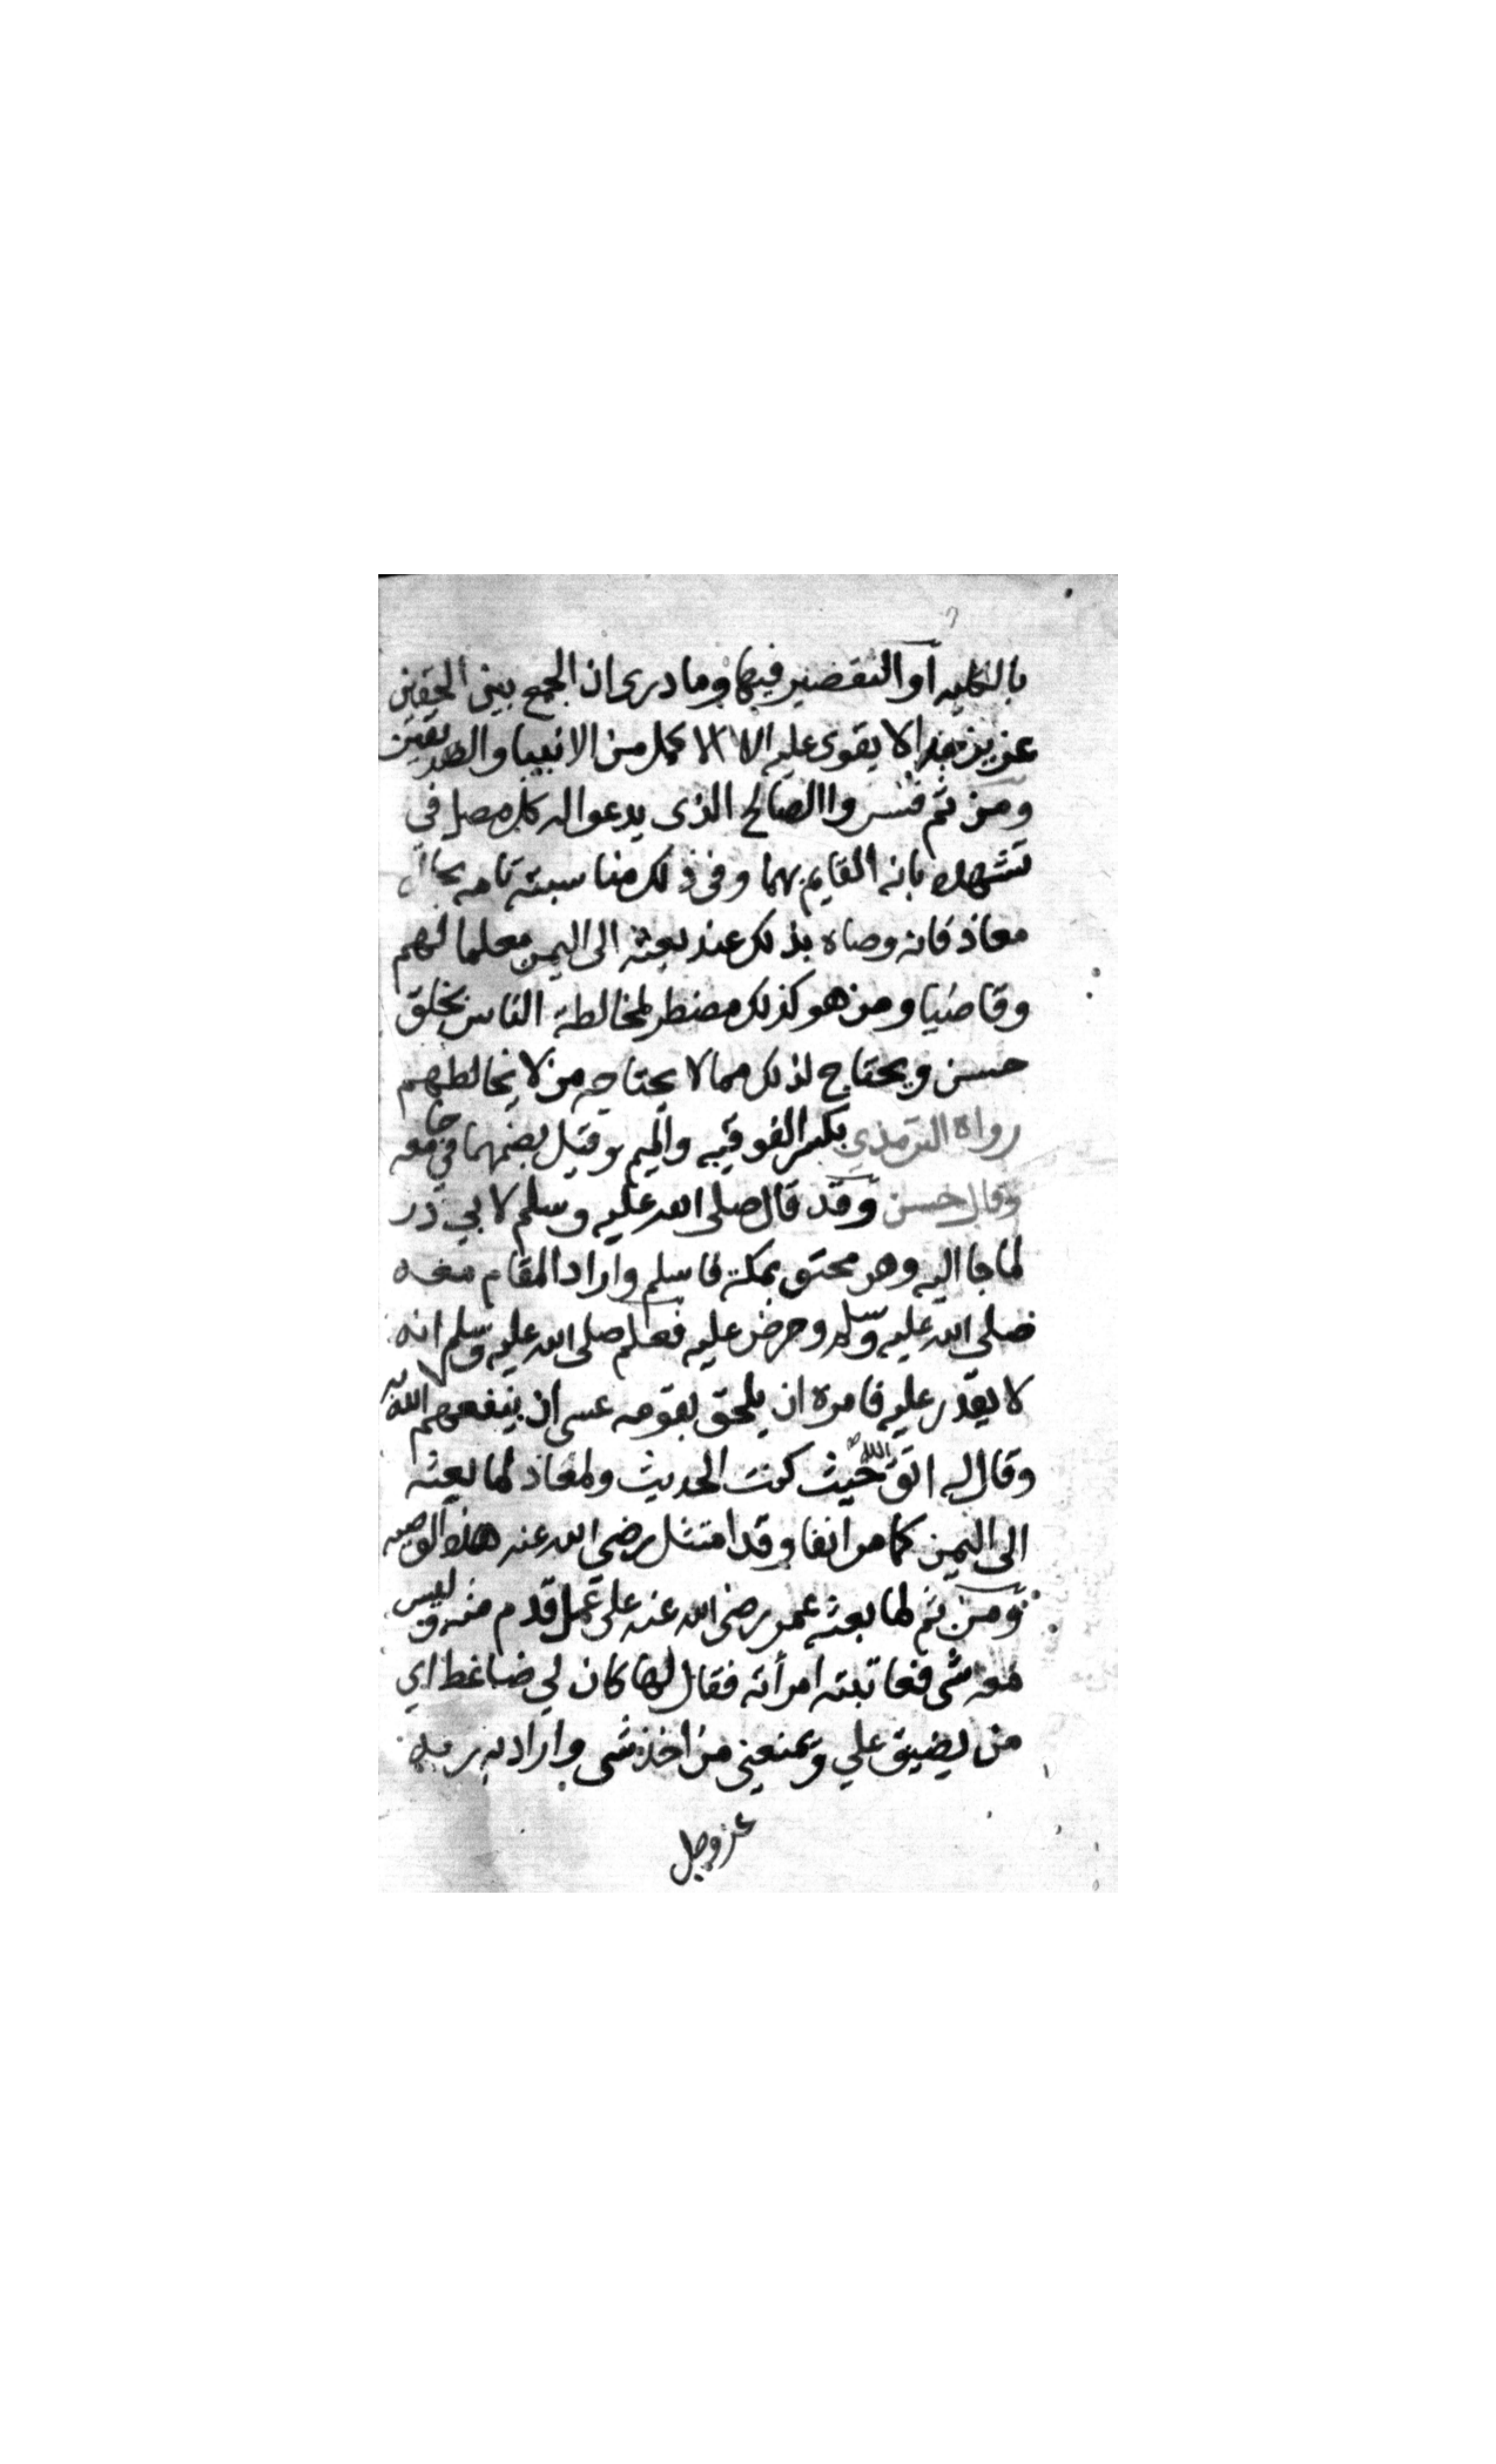 بالكليه أو التقصير فيها وما درى ان الجمع بين الحقين
عزيز جدا لا يقوى عليه الا الاكمل من الانبيا والصديقين
ومن ثم فسروا الصالح الذى يدعو له كل مصل في
تشهده بانه القايم بهما وفى ذلك مناسبة تامه بحال
معاذ فانه وصاه بذلك عند بعثه الى اليمن معلما لهم
وقاضيا ومن هو كذلك مضطر لمخالطة الناس بخلق
حسن ويحتاج لذلك مما لا يحتاجه من لا يخالطهم
رواه الترمذي بكسر الفوقيه والميم وقيل بضمهما في جامعه
وقال حسن وقد قال صلى الله عليه وسلم لابي ذر
لما جا اليه وهو مختف بمكة فاسلم واراد المقام معه
صلى الله عليه وسلم وحرض عليه فعلم صلى الله عليه وسلم انه
لا يقدر عليه فامره ان يلحق بقومه عسى ان ينفعهم الله به
وقال له اتق الله حيث كنت الحديث ولمعاذ لما بعثه
الى اليمن كما مر انفا وقد امتثل رضي الله عنه هذه الوصيه
ومن ثم لما بعثه عمر رضي الله عنه على عمل قدم منه وليس
معه شى فعاتبته امرأته فقال لها كان لي ضاغط اي
من يضيق علي ويمنعني من اخذ شى واراد به ربه
عز وجل